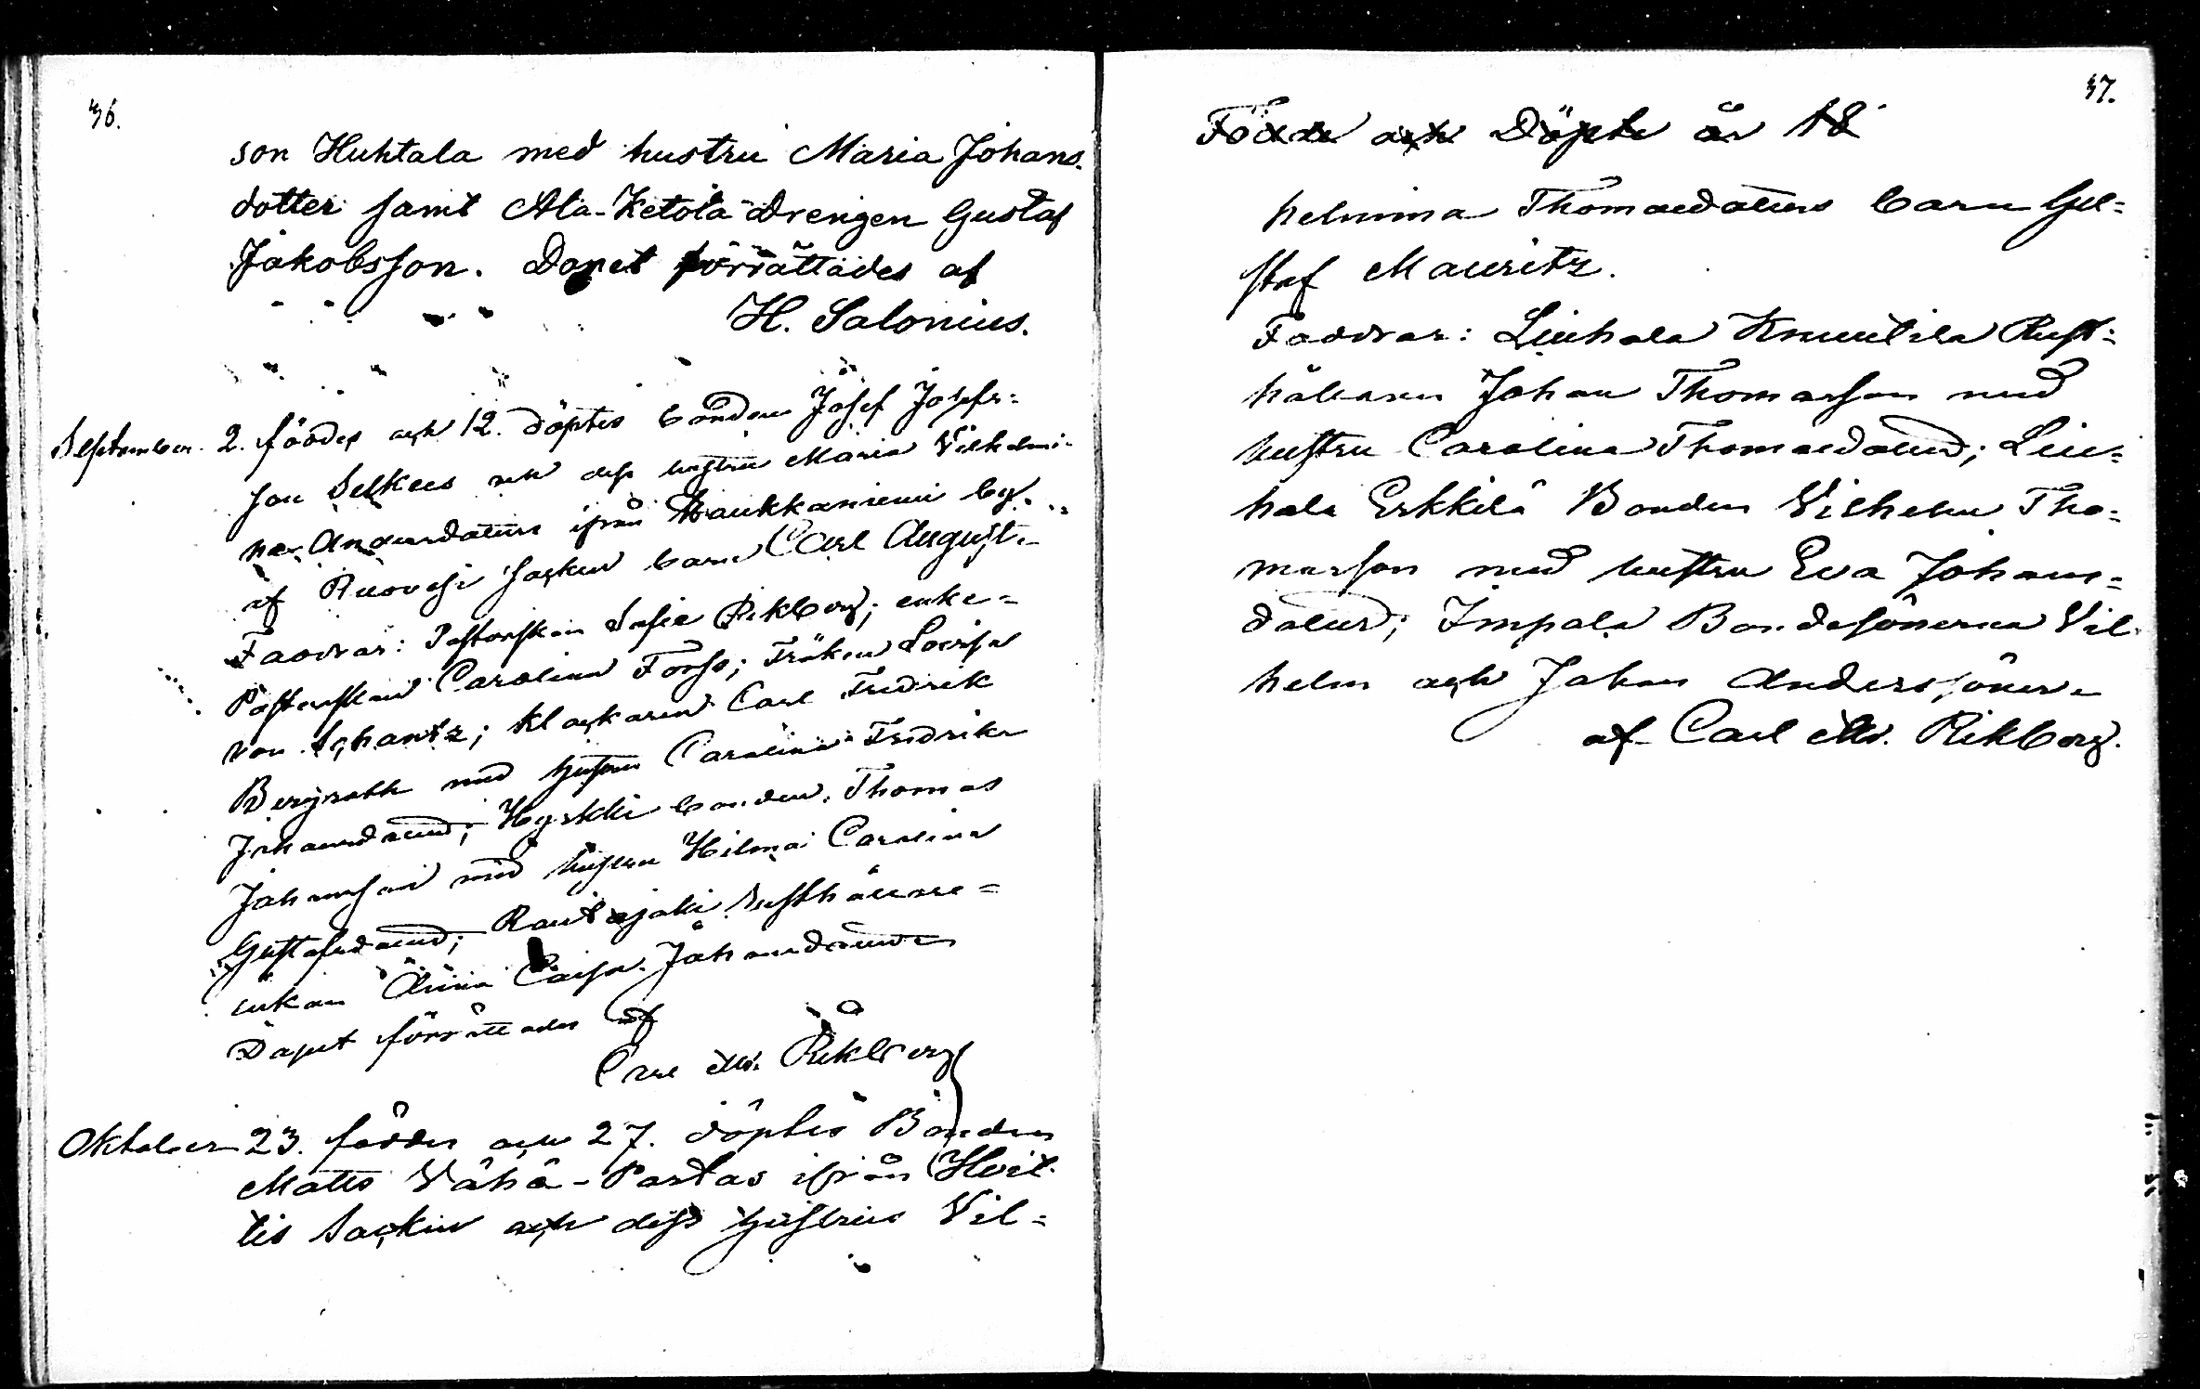 36.
son Huhtala med hustru Maria Johans-
dotter samt Ala-Ketola Drengen Gustaf
Jakobsson. Dopet förrättades af
H. Salonius.
September. 2. föddes och 12. döptes bonden Josef Josefs=
son Selkees och dess hustru Maria Vilhelmi-
na Andersdotters ifrån Haukkaniemi by
af Ruovesi socken barn Carl August.
Faddrar: Pastorskan Sofie Rikberg; enke=
Pastorskan Carolina Forss; Fröken Lovisa
von Schantz; klockaren Carl Fredrik
Bergroth med hustru Carolina Fredrika
Johansdotter; Hyrkki bonden Thomas
Johansson med hustru Hilma Carolina
Gustafsdotter; Rautajoki rusthållare=
enkan Anna Caisa Johansdotter
Dopet förrättades af
Carl M. Rikberg
Oktober 23. föddes och 27. döptes Bonden
Matts Vähä-Pastas ifrån Hvit-
tis Sockn och dess hustrus Vil=
37.
Födde och Döpte år 18
helmina Thomasdotters barn Gu=
staf Mauritz.
Faddrar: Liuhala Knuutila Rust=
hållaren Johan Thomasson med
hustru Carolina Thomasdotter; Liu=
hala Erkkilä Bonden Vilhelm Tho=
masson med hustru Eva Johans=
dotter; Impola Bondesönerna Vil-
helm och Johan Anderssöner
af Carl M. Rikberg.